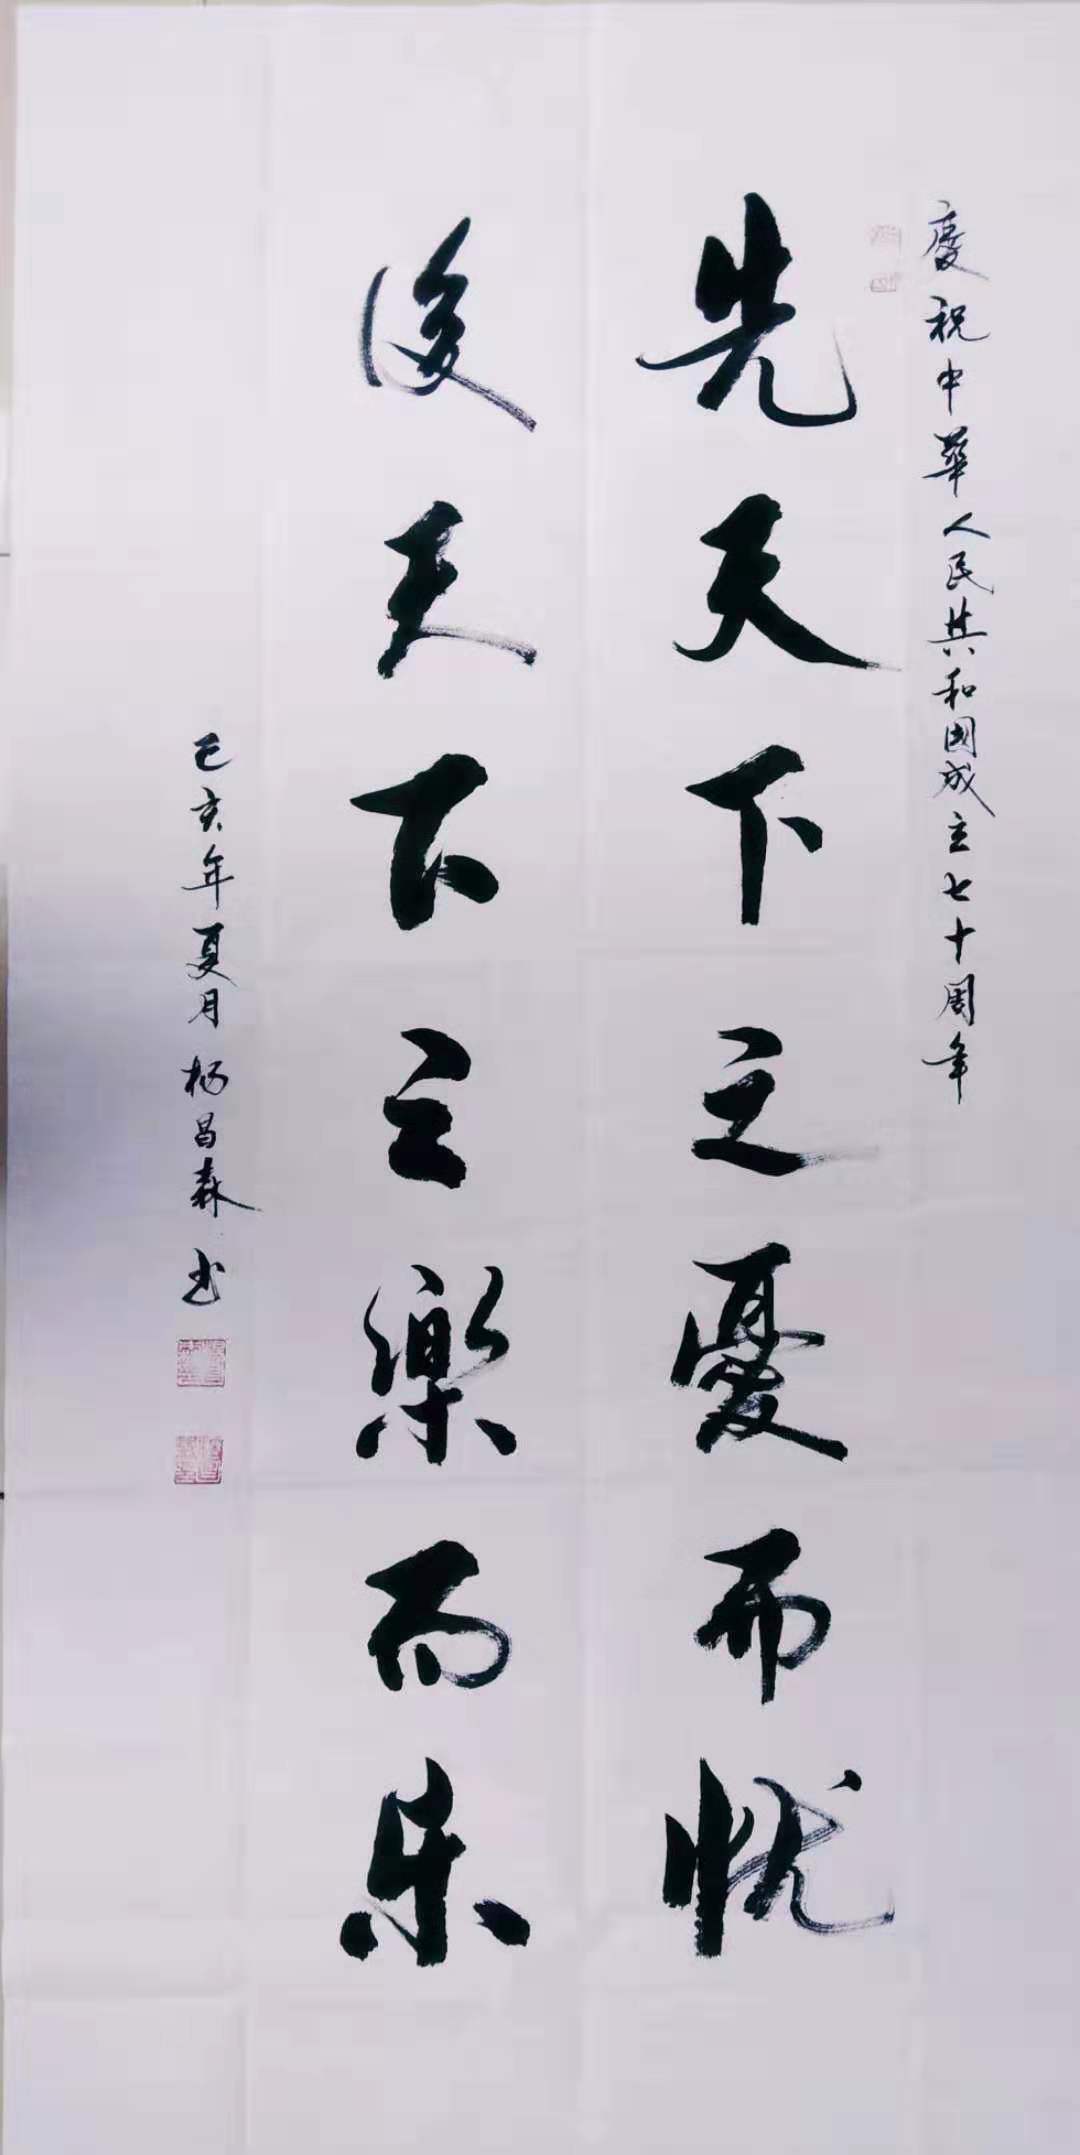 慶祝中華人民共和國成立七十周年
先天下之憂而忧
後天下之樂而乐
己亥年夏月 楊昌森 书